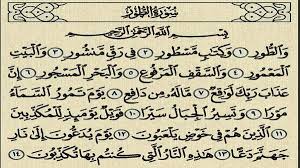 سُورَةُ الطُّورِ
بِسْمِ اللَّهِ الرَّحْمَٰنِ الرَّحِيمِ
وَالطُّورِ ١ وَكِتَٰبٍ مَّسْطُورٍ ٢ فِي رَقٍّ مَّنشُورٍ ٣ وَالْبَيْتِ
الْمَعْمُورِ ٤ وَالسَّقْفِ الْمَرْفُوعِ ٥ وَالْبَحْرِ الْمَسْجُورِ ٦ إِنَّ
عَذَابَ رَبِّكَ لَوَٰقِعٌ ٧ مَّا لَهُ مِن دَافِعٍ ٨ يَوْمَ تَمُورُ السَّمَاءُ
مَوْرًا ٩ وَتَسِيرُ الْجِبَالُ سَيْرًا ١٠ فَوَيْلٌ يَوْمَئِذٍ لِّلْمُكَذِّبِينَ
١١ الَّذِينَ هُمْ فِي خَوْضٍ يَلْعَبُونَ ١٢ يَوْمَ يُدَعُّونَ إِلَىٰ نَارِ
جَهَنَّمَ دَعًّا ١٣ هَٰذِهِ النَّارُ الَّتِي كُنتُم بِهَا تُكَذِّبُونَ ١٤